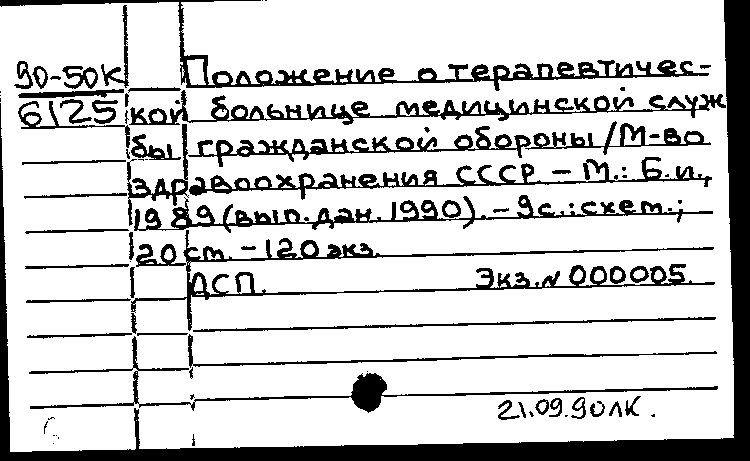 90-50К Положение о терапевтичес-
6125 кой больнице медицинской служ
бы гражданской обороны/М-во
здравоохранения СССР - М.: Б.и.,
1989(вып.дан.1990).-9с.:схем.;
20 см. - 120 экз.
ДСП. Экз.N 000005.
21.09.90ЛК.